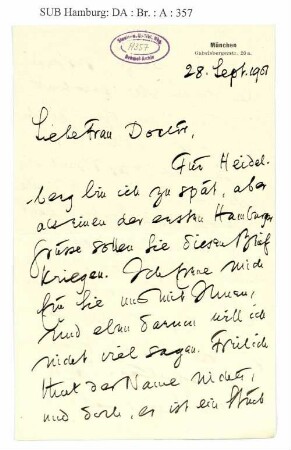 SUB Hamburg: DA : Br. : A : 357
H357
Dehmel-Archiv
München
28. Sept. 1901
Liebe Frau Doctor,
Für Heidel-
berg bin ich zu spät, aber
als einen der ersten Hamburger
Grüsse sollen Sie diesen Brief
kriegen. Ich freue mich
für Sie und mit Ihnen,
und eben darum will ich
nicht viel sagen. Freilich
thut der Name nichts,
und doch, es ist ein Stück